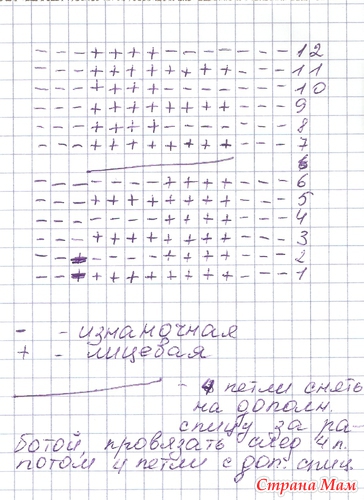 - - - + + + + - - - - - - - 12
- - - + + + + + + + + - - - 11
- - - + + + + - - - - - - - 10
- - - + + + + + + + + - - - 9
- - - + + + + - - - - - - - 8
- - - + + + + + + + + - - - 7
- - - - - - - + + + + - - - 6
- - - + + + + + + + + - - - 5
- - - - - - - + + + + - - - 4
- - - + + + + + + + + - - - 3
- - - - - - - + + + + - - - 2
- - - + + + + + + + + - - - 1
- - изнаночная
+ - лицевая
- 4 петли снять
на дополн.
спицу за ра-
ботой, провязать след 4 п.
потом 4 петли с доп. спиц.
Страна Мам